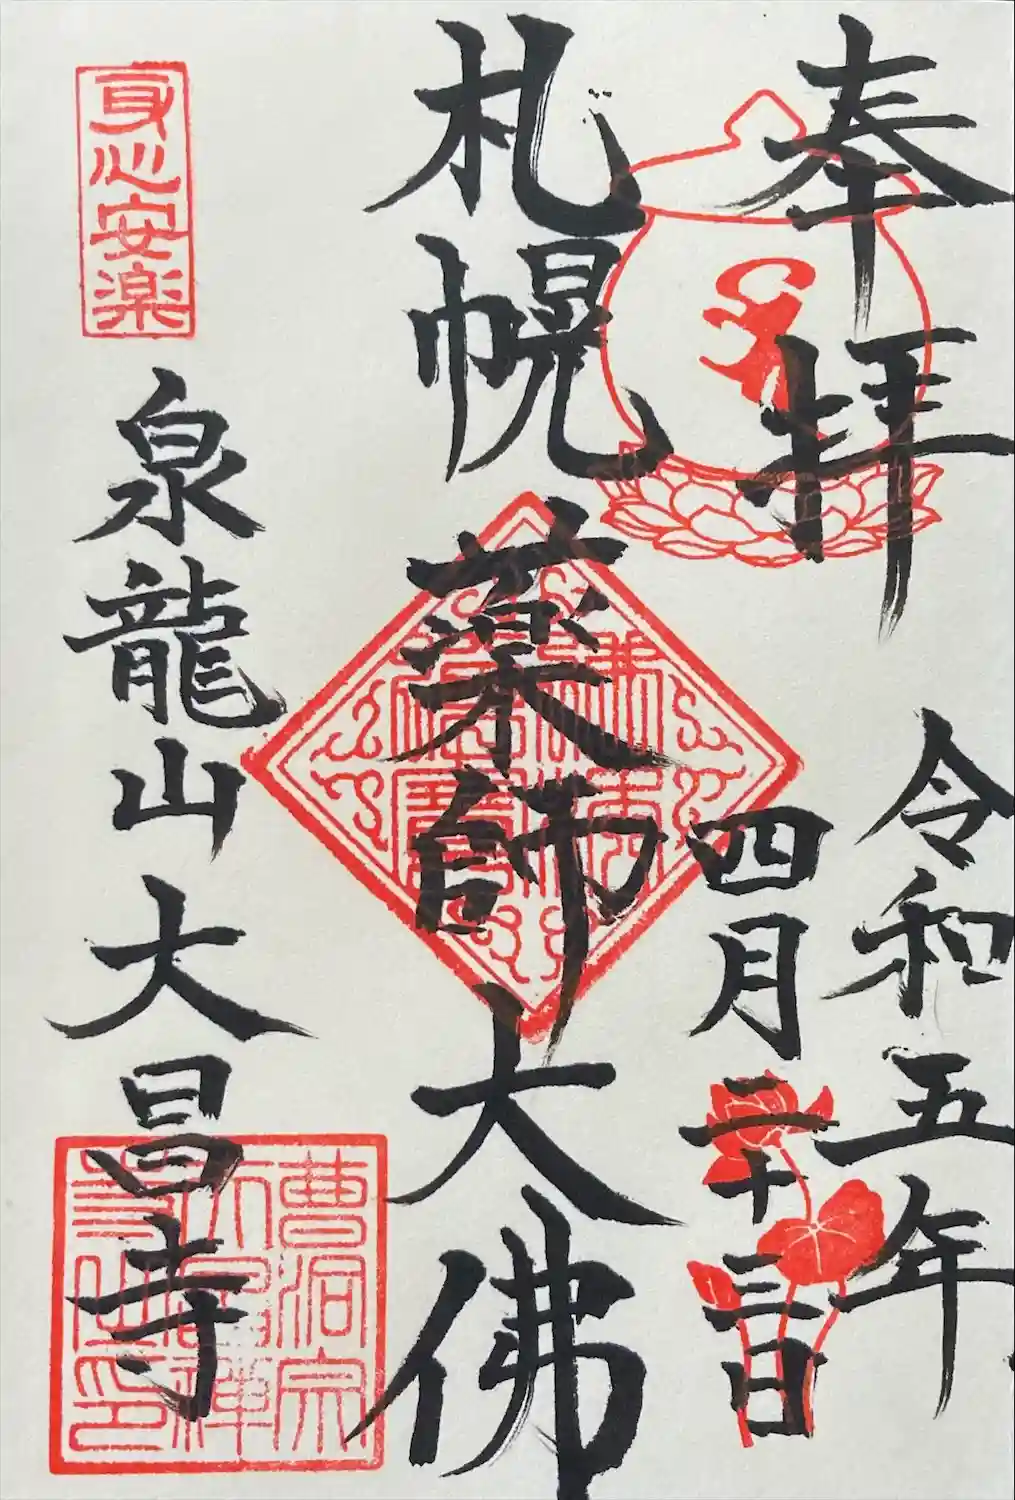 奉拝
令和五年
四月二十三日
札幌
薬師大佛
佛法僧寶
身心安楽
泉龍山大昌寺
曹洞宗
大昌禅
寺之印